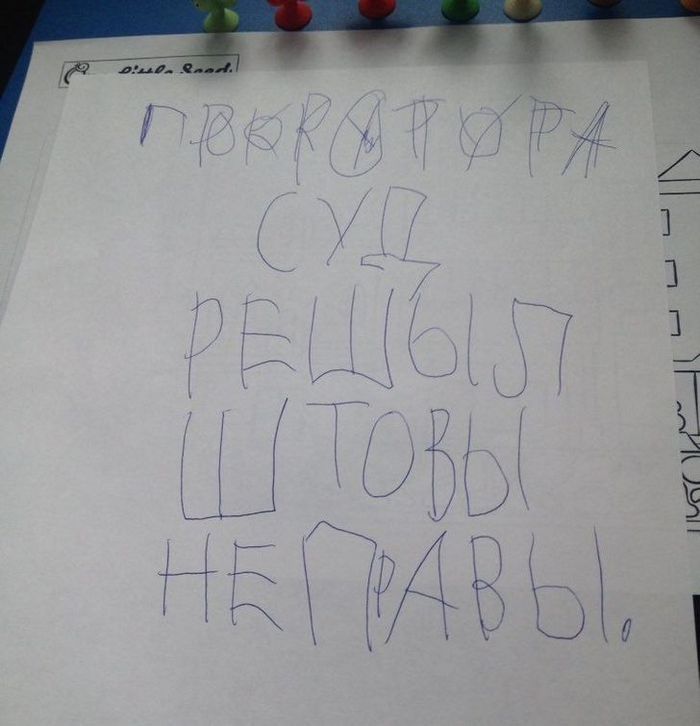 Little Seed
СУД
РЕШЫЛ
ШТОВЫ
НЕПРАВЫ.